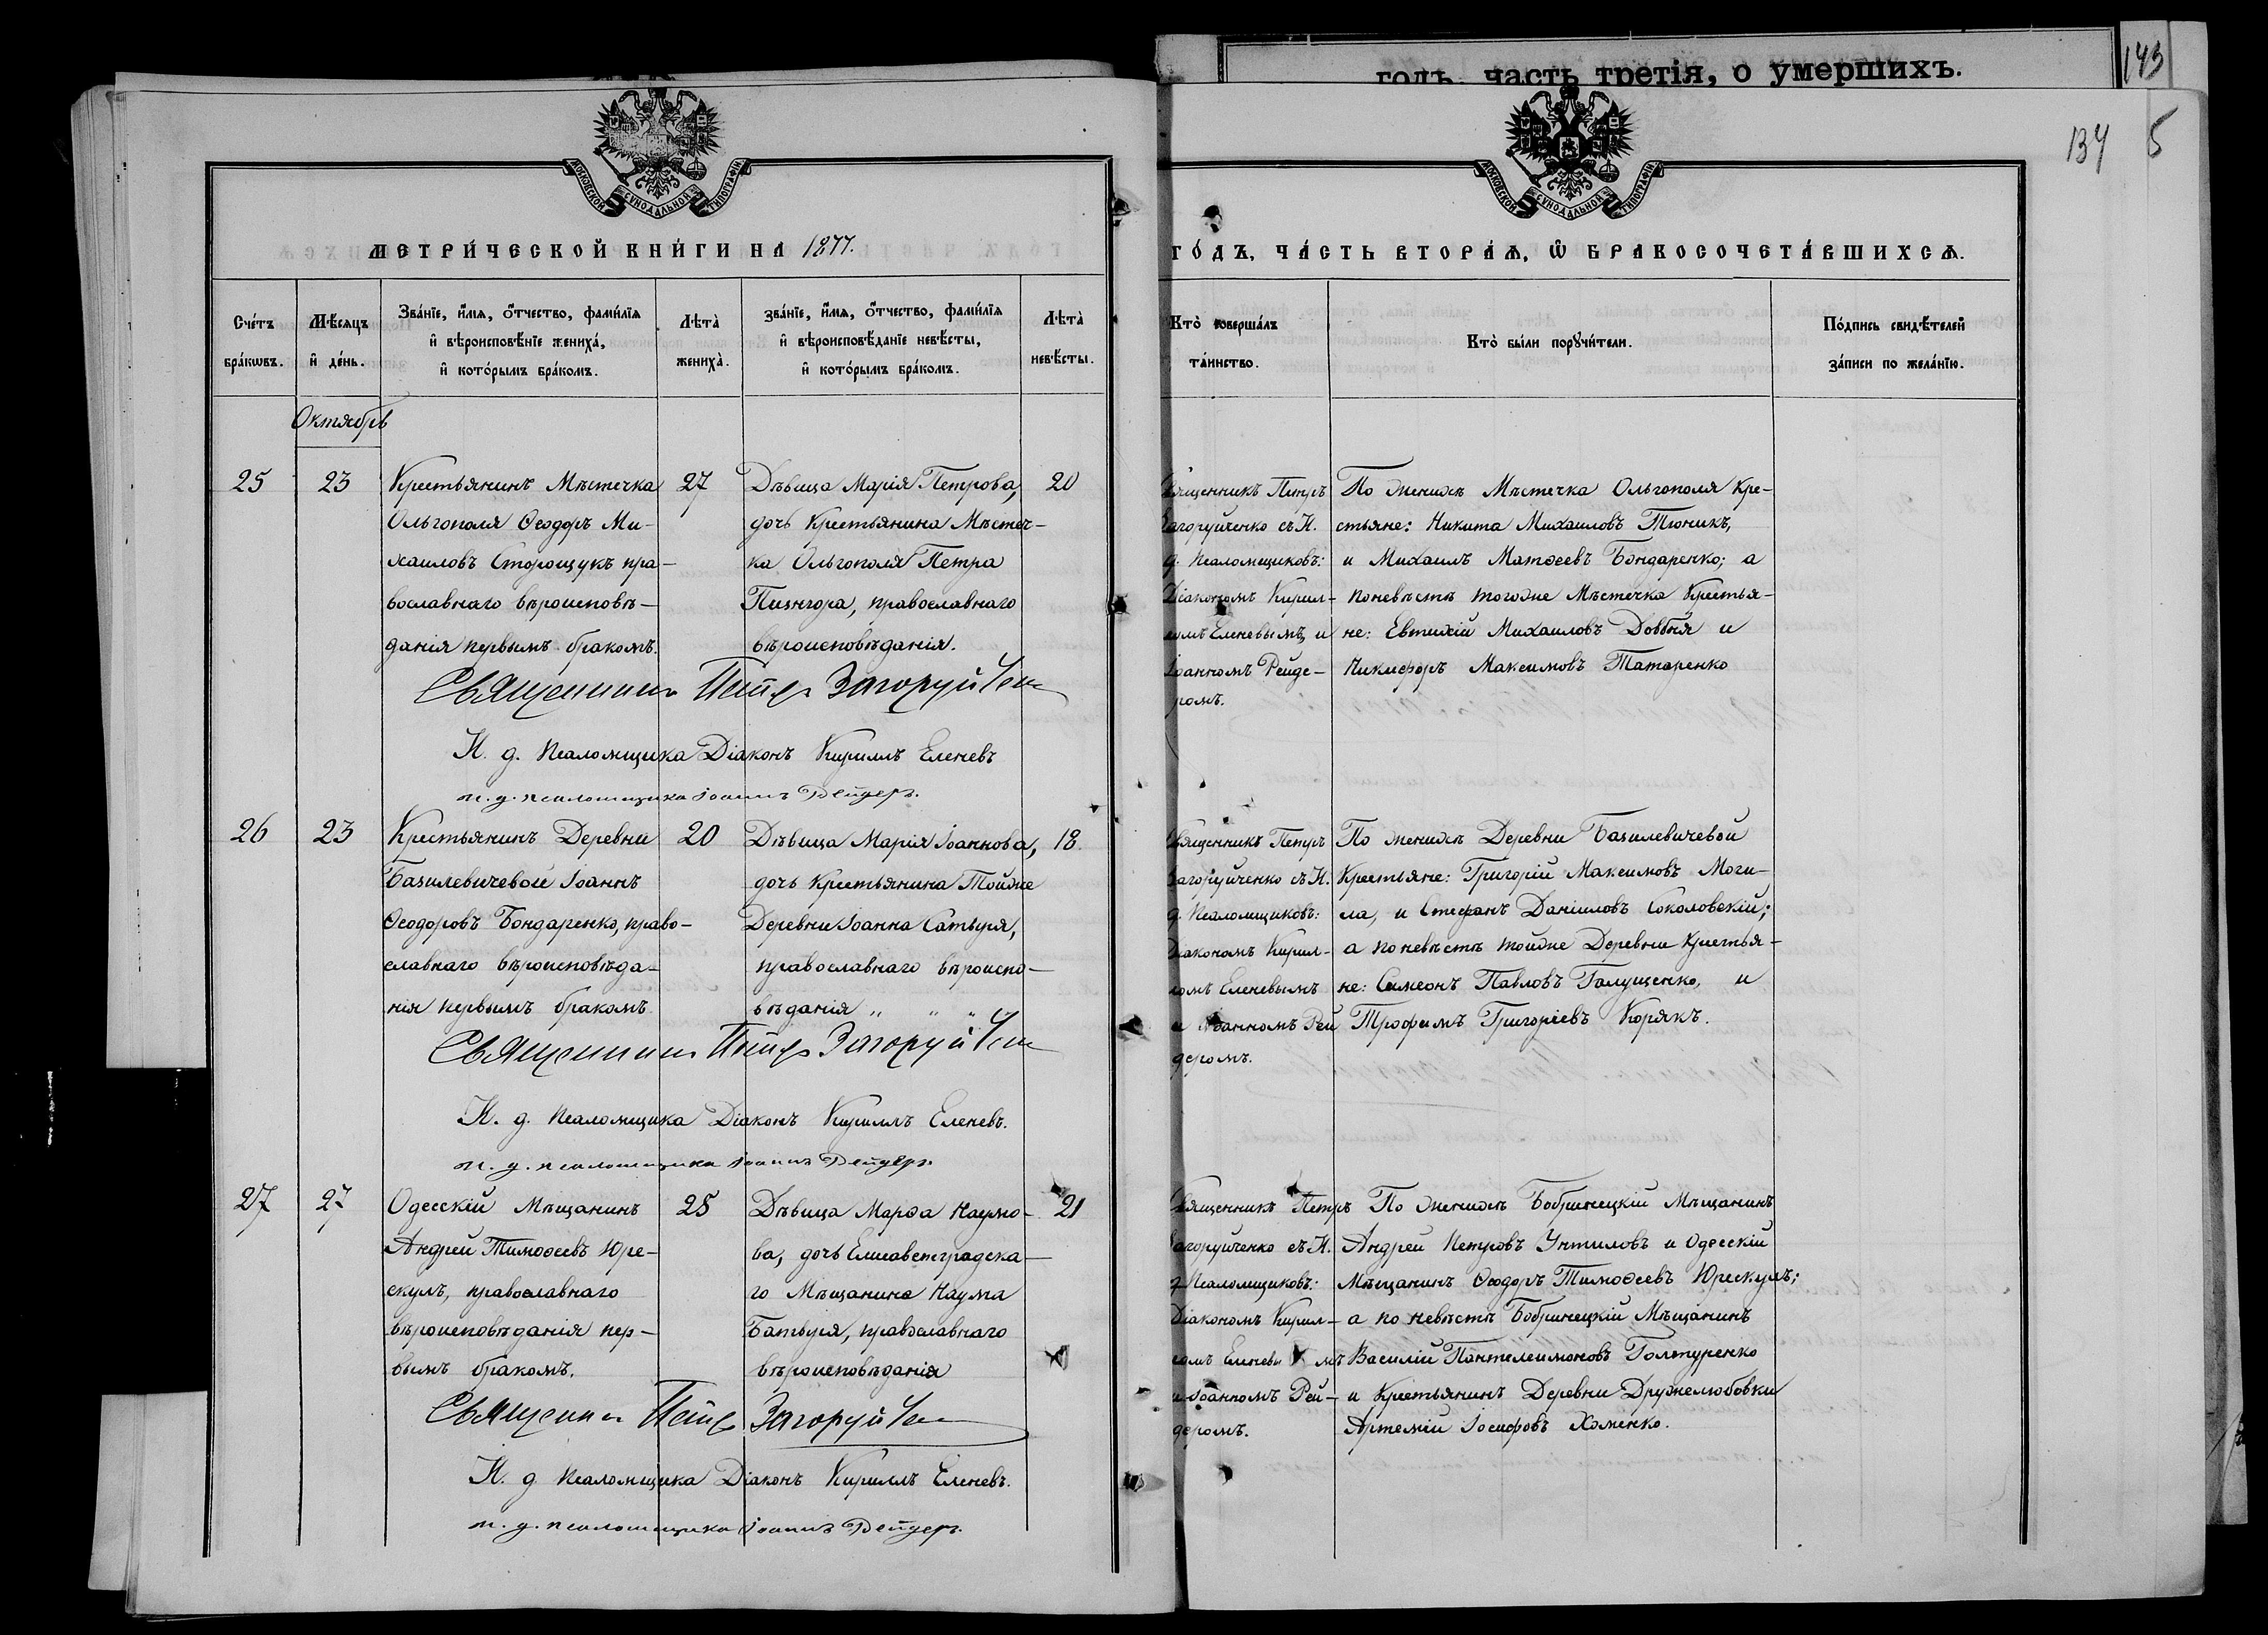 годъ, часть третія, о умершихъ.
143
134 5
МОСКОВСКОЙ СѴНОДАЛЬНОЙ ТИПОГРАФІИ
МОСКОВСКОЙ СѴНОДАЛЬНОЙ ТИПОГРАФІИ
МЕТРИ́ЧЕСКОЙ КНИ́ГИ НА 1877.
ГО́ДЪ, ЧА́СТЬ ВТОРА́Ѧ, Ѡ҆ БРАКОСОЧЕТА́ВШИХСѦ.
Сче́тъ
бра́кѡвъ.
Мѣ́сяцъ
и҆ де́нь.
Зва́нїе, и҆́мя, о҆́тчество, фами́лїя
и҆ вѣроисповѣ́нїе жениха̀,
и҆ кото́рымъ бра́комъ.
Лѣта̀
жениха̀.
зва́нїе, и҆́мя, о҆́тчество, фами́лїя
и҆ вѣроисповѣ́данїе невѣ́сты,
и҆ кото́рымъ бра́комъ.
Лѣта̀
невѣ́сты.
Кто̀ соверша́лъ
та́инство.
Кто̀ бы́ли порꙋчи́тели.
По́дпись свидѣ́телей
за́писи по жела́нїю.
Октябрь
25
23
Крестьянинъ Мѣстечка
Ольгополя Ѳеодоръ Ми-
хаиловъ Сторощукъ пра-
вославнаго вѣроисповѣ-
данія первымъ бракомъ.
27
Дѣвица Марія Петрова,
дочь Крестьянина Мѣстеч-
ка Ольгополя Петра
Пизнгора, православнаго
вѣроисповѣданія.
20
Священникъ Петръ
Загоруйченко съ И.
д. Псаломщиковъ:
Діакономъ Кирил-
ломъ Еленевымъ и
Іоанномъ Рейде-
ромъ.
По женихѣ Мѣстечка Ольгополя Кре-
стьяне: Никита Михаиловъ Тюникъ,
и Михаилъ Матѳеевъ Бондаренко; а
по невѣстѣ тогоже Мѣстечка Крестья-
не: Евтихій Михаиловъ Довбня и
Никифоръ Максимовъ Татаренко
Священникъ Петръ Загоруйченко
И. д. Псаломщика Діаконъ Кириллъ Еленевъ
и. д. псаломщика Іоаннъ Рейдеръ.
26
23
Крестьянинъ Деревни
Базилевичевой Іоаннъ
Ѳеодоровъ Бондаренко, право-
славнаго вѣроисповѣда-
нія первымъ бракомъ
20
Дѣвица Марія Іоаннова,
дочь Крестьянина Тойже
Деревни Іоанна Сатыря,
православнаго вѣроиспо-
вѣданія „ „ „
18.
Священникъ Петръ
Загоруйченко съ И.
д. Псаломщиковъ:
Діакономъ Кирил-
ломъ Еленевымъ
и Іоанномъ Рей
деромъ.
По женихѣ Деревни Базилевичевой
Крестьяне: Григорій Максимовъ Моги-
ла, и Стефанъ Даниловъ Соколовскій;
а по невѣстѣ тойже Деревни Крестья-
не: Симеонъ Павловъ Галущенко, и
Трофимъ Григоріевъ Корякъ.
Священникъ Петръ Загоруйченко
И. д. Псаломщика Діаконъ Кириллъ Еленевъ.
и. д. псаломщика Іоаннъ Рейдеръ.
27
27
Одесскій Мѣщанинъ
Андрей Тимоѳеевъ Юре-
скулъ, православнаго
вѣроисповѣданія пер-
вымъ бракомъ.
25
Дѣвица Марѳа Наумо-
ва, дочь Елисаветградска-
го Мѣщанина Наума
Батыря, православнаго
вѣроисповѣданія
21
Священникъ Петръ
Загоруйченко съ И.
д. Псаломщиковъ:
Діакономъ Кирил-
ломъ Еленевымъ
и Іоанномъ Рей-
деромъ.
По женихѣ Бобринецкій Мѣщанинъ
Андрей Петровъ Унтиловъ и Одесскій
Мѣщанинъ Ѳеодоръ Тимоѳеевъ Юрескулъ;
а по невѣстѣ Бобринецкій Мѣщанинъ
Василій ПантелеимоновъГолтуренко
и Крестьянинъ Деревни Дружелюбовки
Артемій Іосифовъ Хоменко.
Священникъ Петръ Загоруйченко
И. д Псаломщика Діаконъ Кириллъ Еленевъ.
и. д. псаломщика Іоаннъ Рейдеръ.